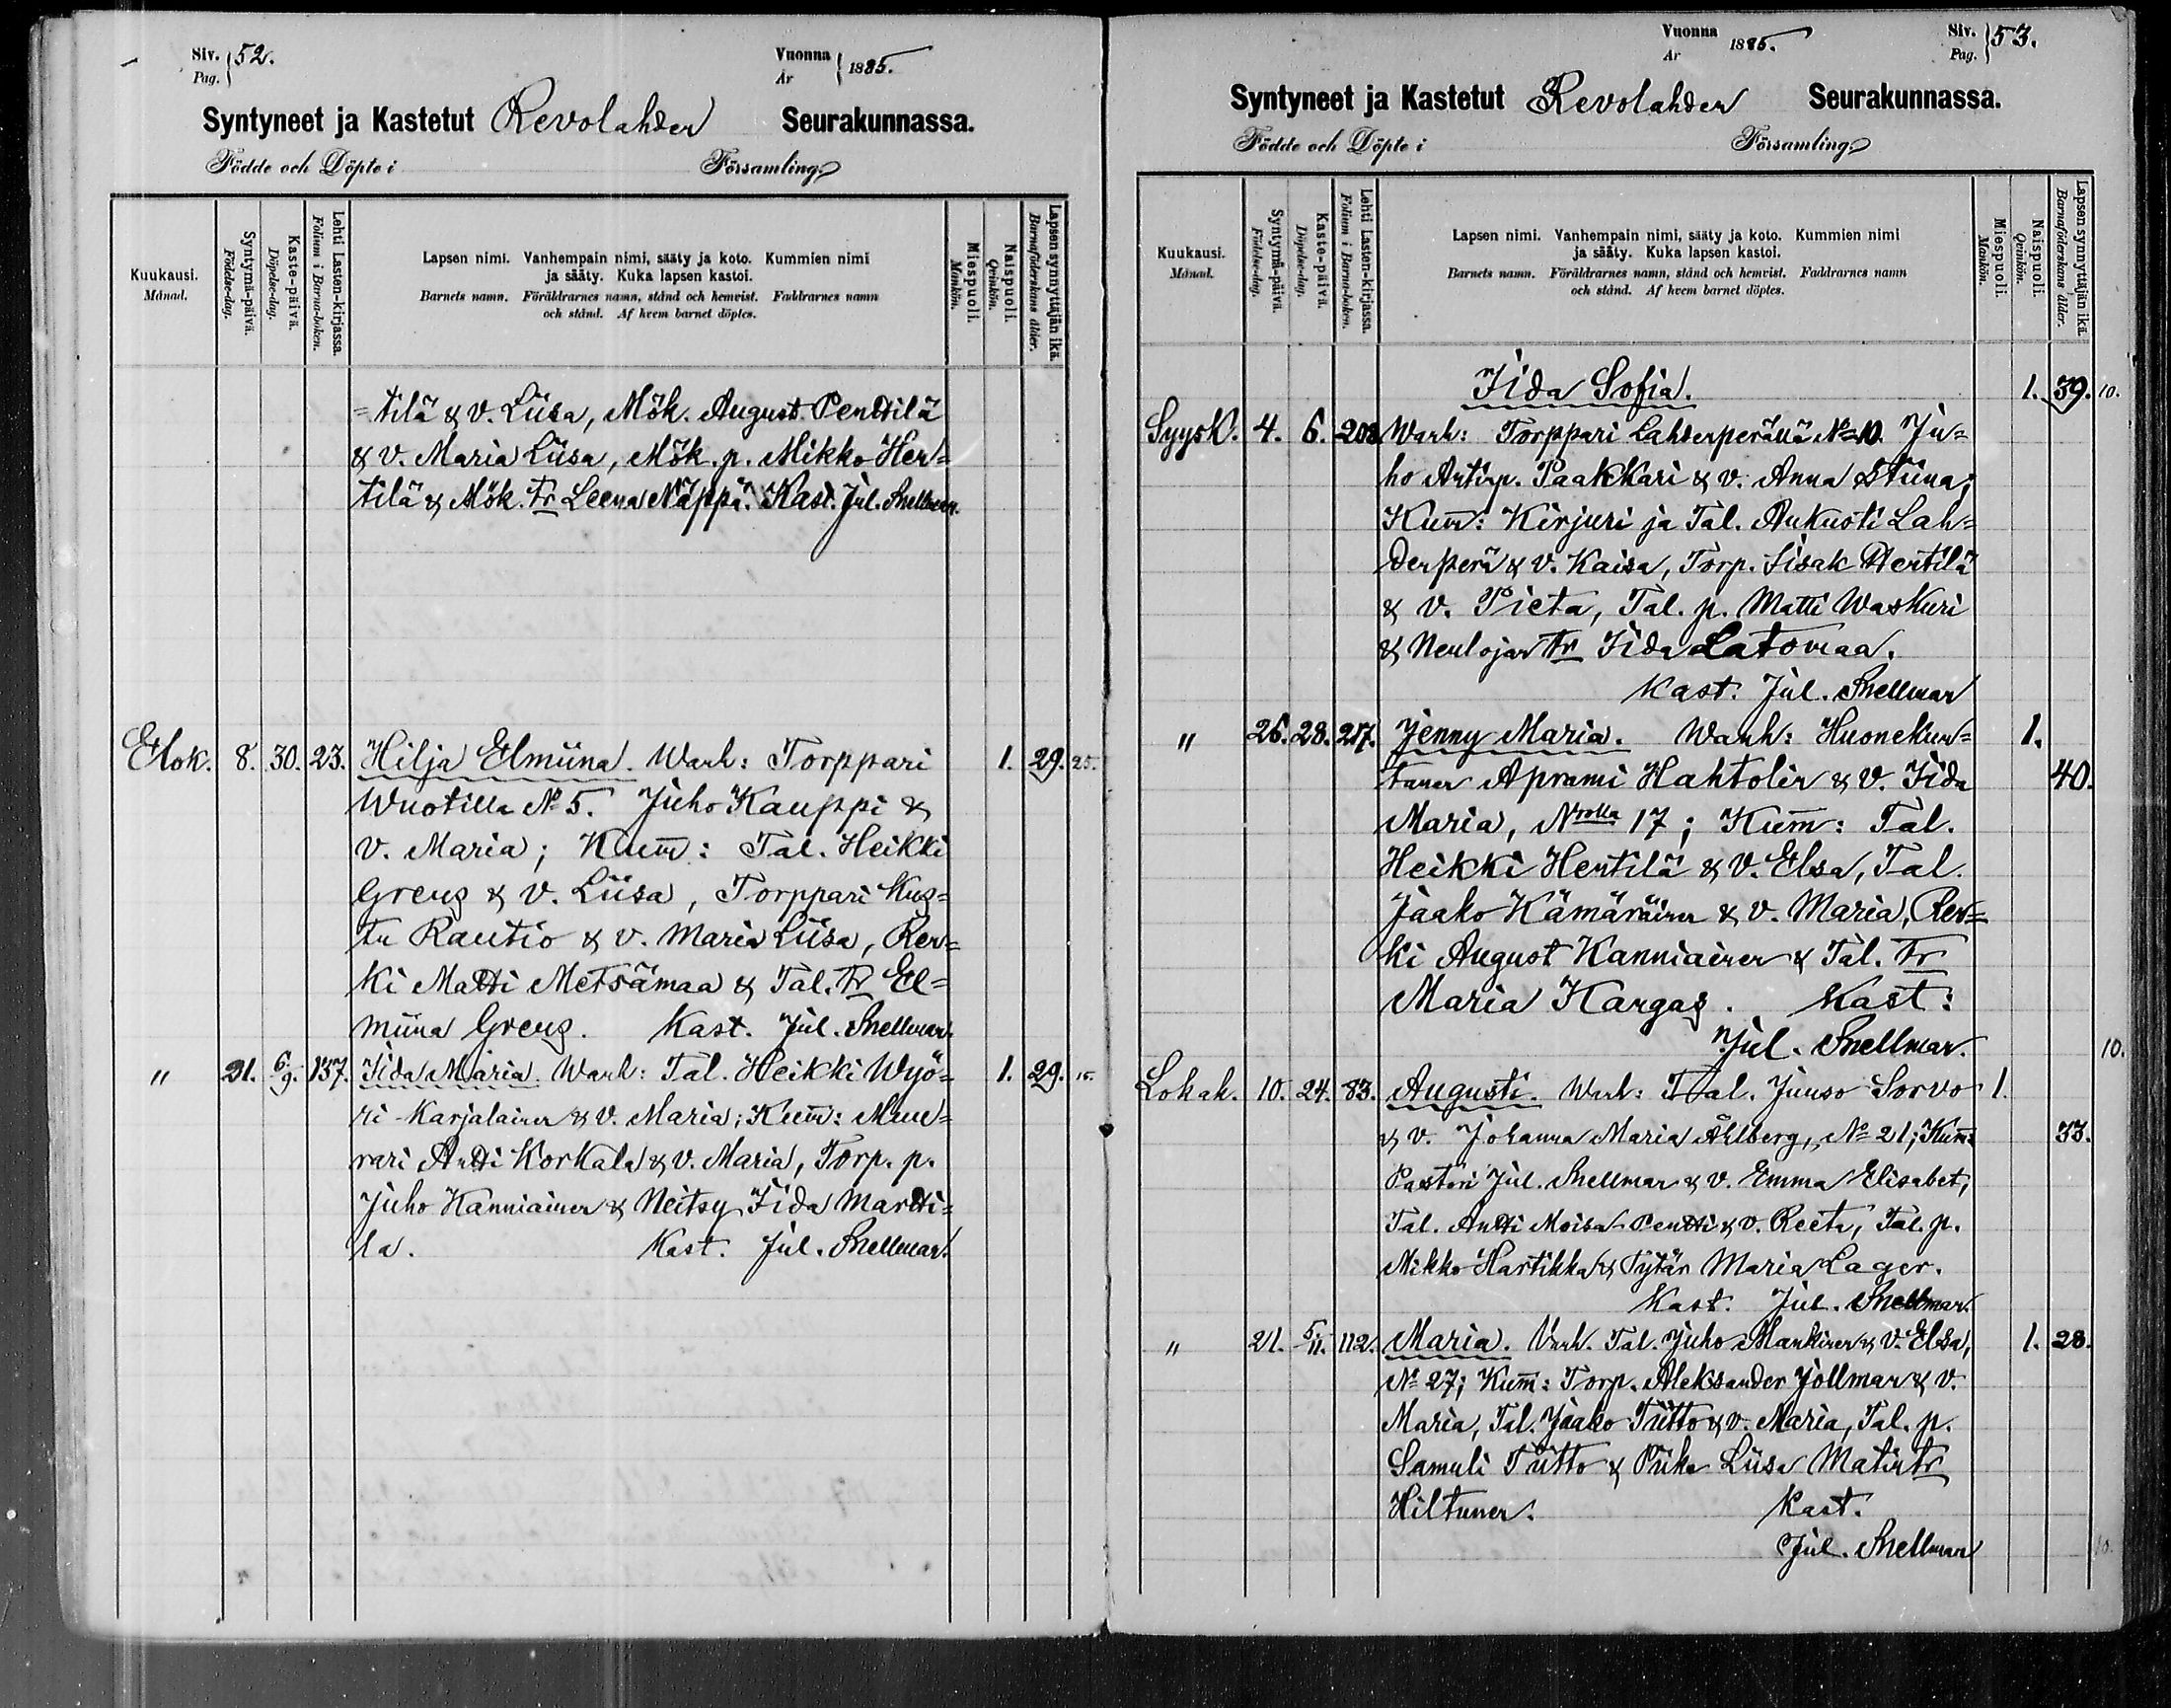 Siv. Pag. 52.
Vuonna År 1885.
Syntyneet ja Kastetut Revolahden Seurakunnassa.
Födde och Döpte i Församling
Kuukausi. Månad.
Syntymä-päivä. Födelse-dag.
Kaste-päivä. Döpelse-dag.
Lehti Lasten-kirjassa. Folium i Barna-boken.
Lapsen nimi. Vanhempain nimi, sääty ja koto. Kummien nimi
ja sääty. Kuka lapsen kastoi.
Barnets namn. Föräldrarnes namn, stånd och hemvist. Faddrarnes namn
och stånd. Af hvem barnet döptes.
Miespuoli. Mankön.
Naispuoli. Qvinkön.
Lapsen synnyttäjän ikä. Barnaföderskans ålder.
=tilä & v. Liisa, Mök. August Penttilä
& v. Maria Liisa, Mök. p. Mikko Her=
tilä & Mök. tr Leena Näppä. Kast. Jul. Snellman.
Elok. 8. 30. 23. Hilja Elmiina. Wanh: Torppari 1. 29. 25.
Wuotilla No 5. Juho Kauppi &
v. Maria; Kumm: Tal. Heikki
Greus & v. Liisa, Torppari Kus=
tu Rautio & v. Maria Liisa, Ren=
ki Matti Metsämaa & Tal. tr El=
miina Greus. Kast. Jul. Snellman.
" 21. 6/9. 157. Iida Maria. Wanh: Tal. Heikki Wyö= 1. 29. 15.
ri-Karjalainen & v. Maria; Kumm: Muu=
rari Antti Korkala & v. Maria, Torp. p.
Juho Kanniainen & Neitsy Iida Martti=
la. Kast. Jul. Snellman.
Vuonna År 1885.
Siv. Pag. 53.
Syntyneet ja Kastetut Revolahden Seurakunnassa.
Födde och Döpte i Församling
Kuukausi. Månad.
Syntymä-päivä. Födelse-dag.
Kaste-päivä. Döpelse-dag.
Lehti Lasten-kirjassa. Folium i Barna-boken.
Lapsen nimi. Vanhempain nimi, sääty ja koto. Kummien nimi
ja sääty. Kuka lapsen kastoi.
Barnets namn. Föräldrarnes namn, stånd och hemvist. Faddrarnes namn
och stånd. Af hvem barnet döptes.
Miespuoli. Mankön.
Naispuoli. Qvinkön.
Lapsen synnyttäjän ikä. Barnaföderskans ålder.
Iida Sofia. 1. 39. 10.
Syysk. 4. 6. 208 Wanh: Torppari Lahdenperällä No 10. Ju=
ho Antinp. Paakkari & v. Anna Stiina;
Kumm: Kirjuri ja Tal. Aukusti Lah=
denperä & v. Kaisa, Torp. Iisak Hertilä
& v. Pieta, Tal. p. Matti Waskuri
& Neulojan tr Iida Latomaa.
Kast. Jul. Snellman
" 26. 28. 217. Jenny Maria. Wanh: Huonekun= 1.
tainen Aprami Hahtolin & v. Iida 40.
Maria, Nrolla 17; Kumm: Tal.
Heikki Hertilä & v. Elsa, Tal.
Jaako Kämäräinen & v. Maria, Ren=
ki August Kanniainen & Tal. tr
Maria Kargas. Kast:
Jul. Snellman. 10.
Lokak. 10. 24. 83. Augusti. Wanh: Tal. Juuso Sorvo 1.
& v. Johanna Maria Åhlberg, No 21; Kumm: 33.
Pastori Jul. Snellman & v. Emma Elisabet,
Tal. Antti Moisa-Pentti & v. Reeta, Tal. p.
Mikko Hartikka & Tytär Maria Lager.
Kast. Jul. Snellman.
" 21. 5/11. 112. Maria. Vanh. Tal. Juho Mankinen & v. Elsa, 1. 28.
No 27; Kumm: Torp. Aleksander Jollman & v.
Maria, Tal. Jaako Tiitto & v. Maria, Tal. p.
Samuli Tiitto & Piika Liisa Matintr
Hiltunen. Kast.
Jul. Snellman 10.